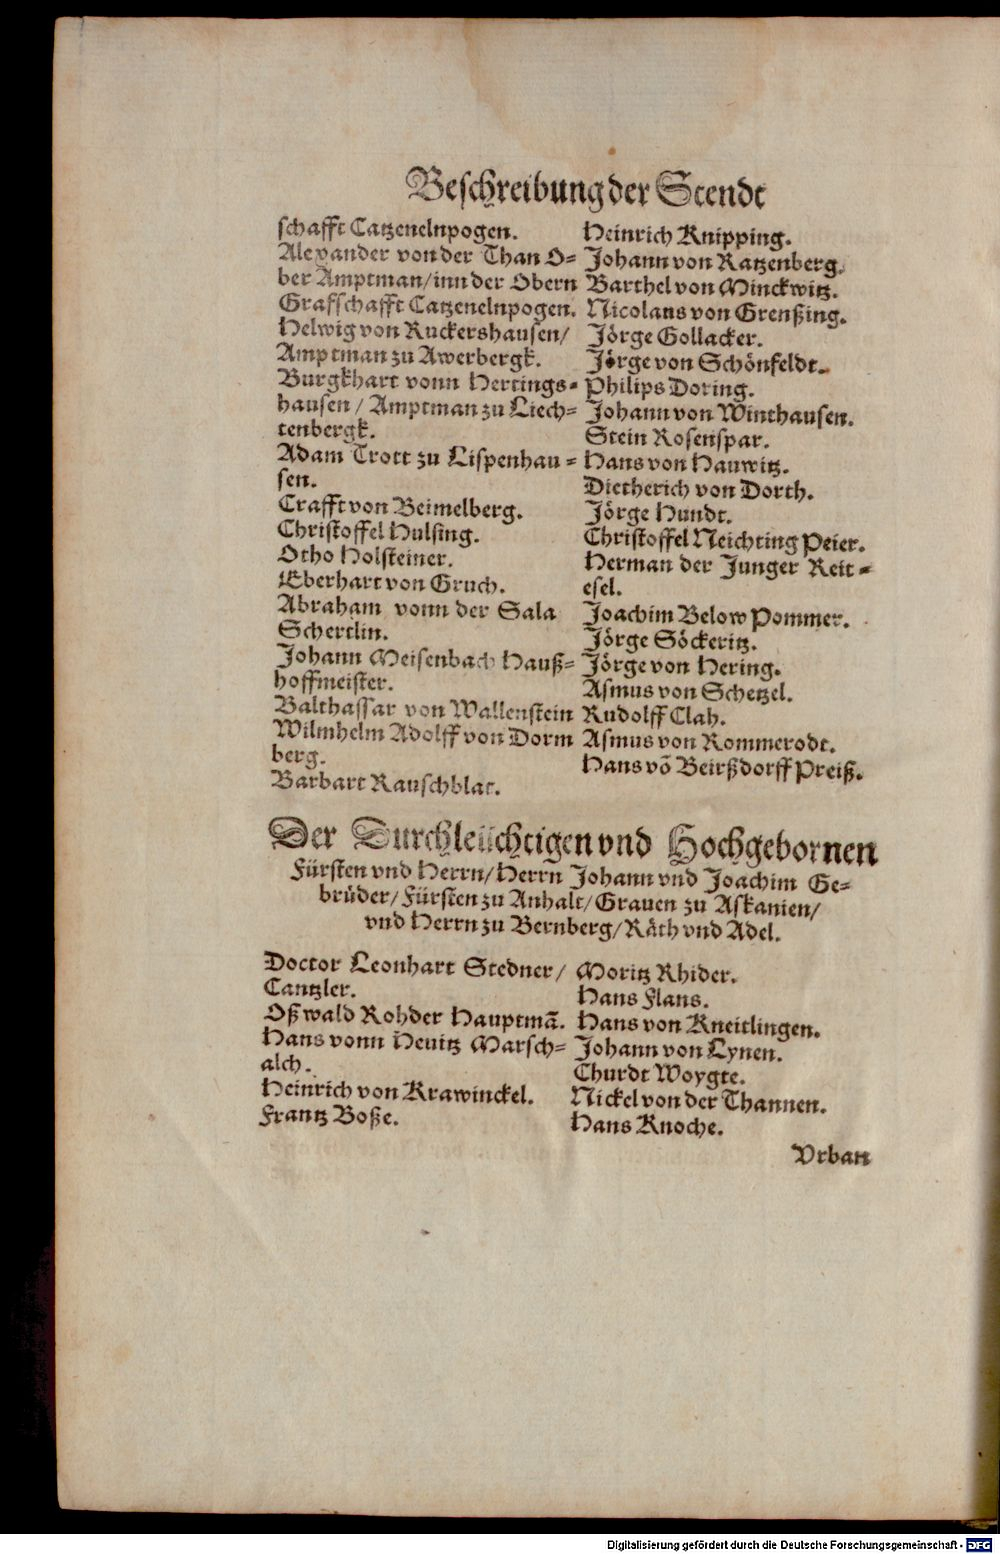 Beschreibung der Stendt
schafft Catzenelnpogen.
Alexander von der Than O=
ber Amptman/inn der Obern
Grafschafft Catzenelnpogen.
Helwig von Ruckershausen/
Amptman zu Awerbergk.
Burgkhart vonn Hertings=
hausen / Amptman zu Liech=
tenbergk.
Adam Trott zu Lispenhau=
sen.
Crafft von Beimelberg.
Christoffel Hulsing.
Otho Holsteiner.
Eberhart von Gruch.
Abraham vonn der Sala
Schertlin.
Johann Meisenbach Hauß=
hoffmeister.
Balthassar von Wallenstein
Wilmhelm Adolff von Dorm
berg.
Barbart Rauschblat.
Heinrich Knipping.
Johann von Ratzenberg.
Barthel von Minckwitz.
Nicolaus von Grenßing.
Jörge Gollacker.
Jörge von Schönfeldt.
Philips Doring.
Johann von Winthausen.
Stein Rosenspar.
Hans von Hauwitz.
Dietherich von Dorth.
Jörge Hundt.
Christoffel Neichting Peier.
Herman der Junger Reit=
esel.
Joachim Below Pommer.
Jörge Söckeritz.
Jörge von Hering.
Asmus von Schetzel.
Rudolff Clah.
Asmus von Rommerodt.
Hans võ Beirßdorff Preiß.
Der Durchleüchtigen vnd Hochgebornen
Fürsten vnd Herrn/Herrn Johann vnd Joachim Ge=
brüder/Fürsten zu Anhalt/Grauen zu Askanien/
vnd Herrn zu Bernberg/Räth vnd Adel.
Doctor Leonhart Stedner/
Cantzler.
Oßwald Rohder Hauptmã.
Hans vonn Heuitz Marsch=
alch.
Heinrich von Krawinckel.
Frantz Boße.
Moritz Rhider.
Hans Flans.
Hans von Kneitlingen.
Johann von Lynen.
Churdt Woygte.
Nickel von der Thannen.
Hans Knoche.
Vrban
Digitalisierung gefördert durch die Deutsche Forschungsgemeinschaft - DFG